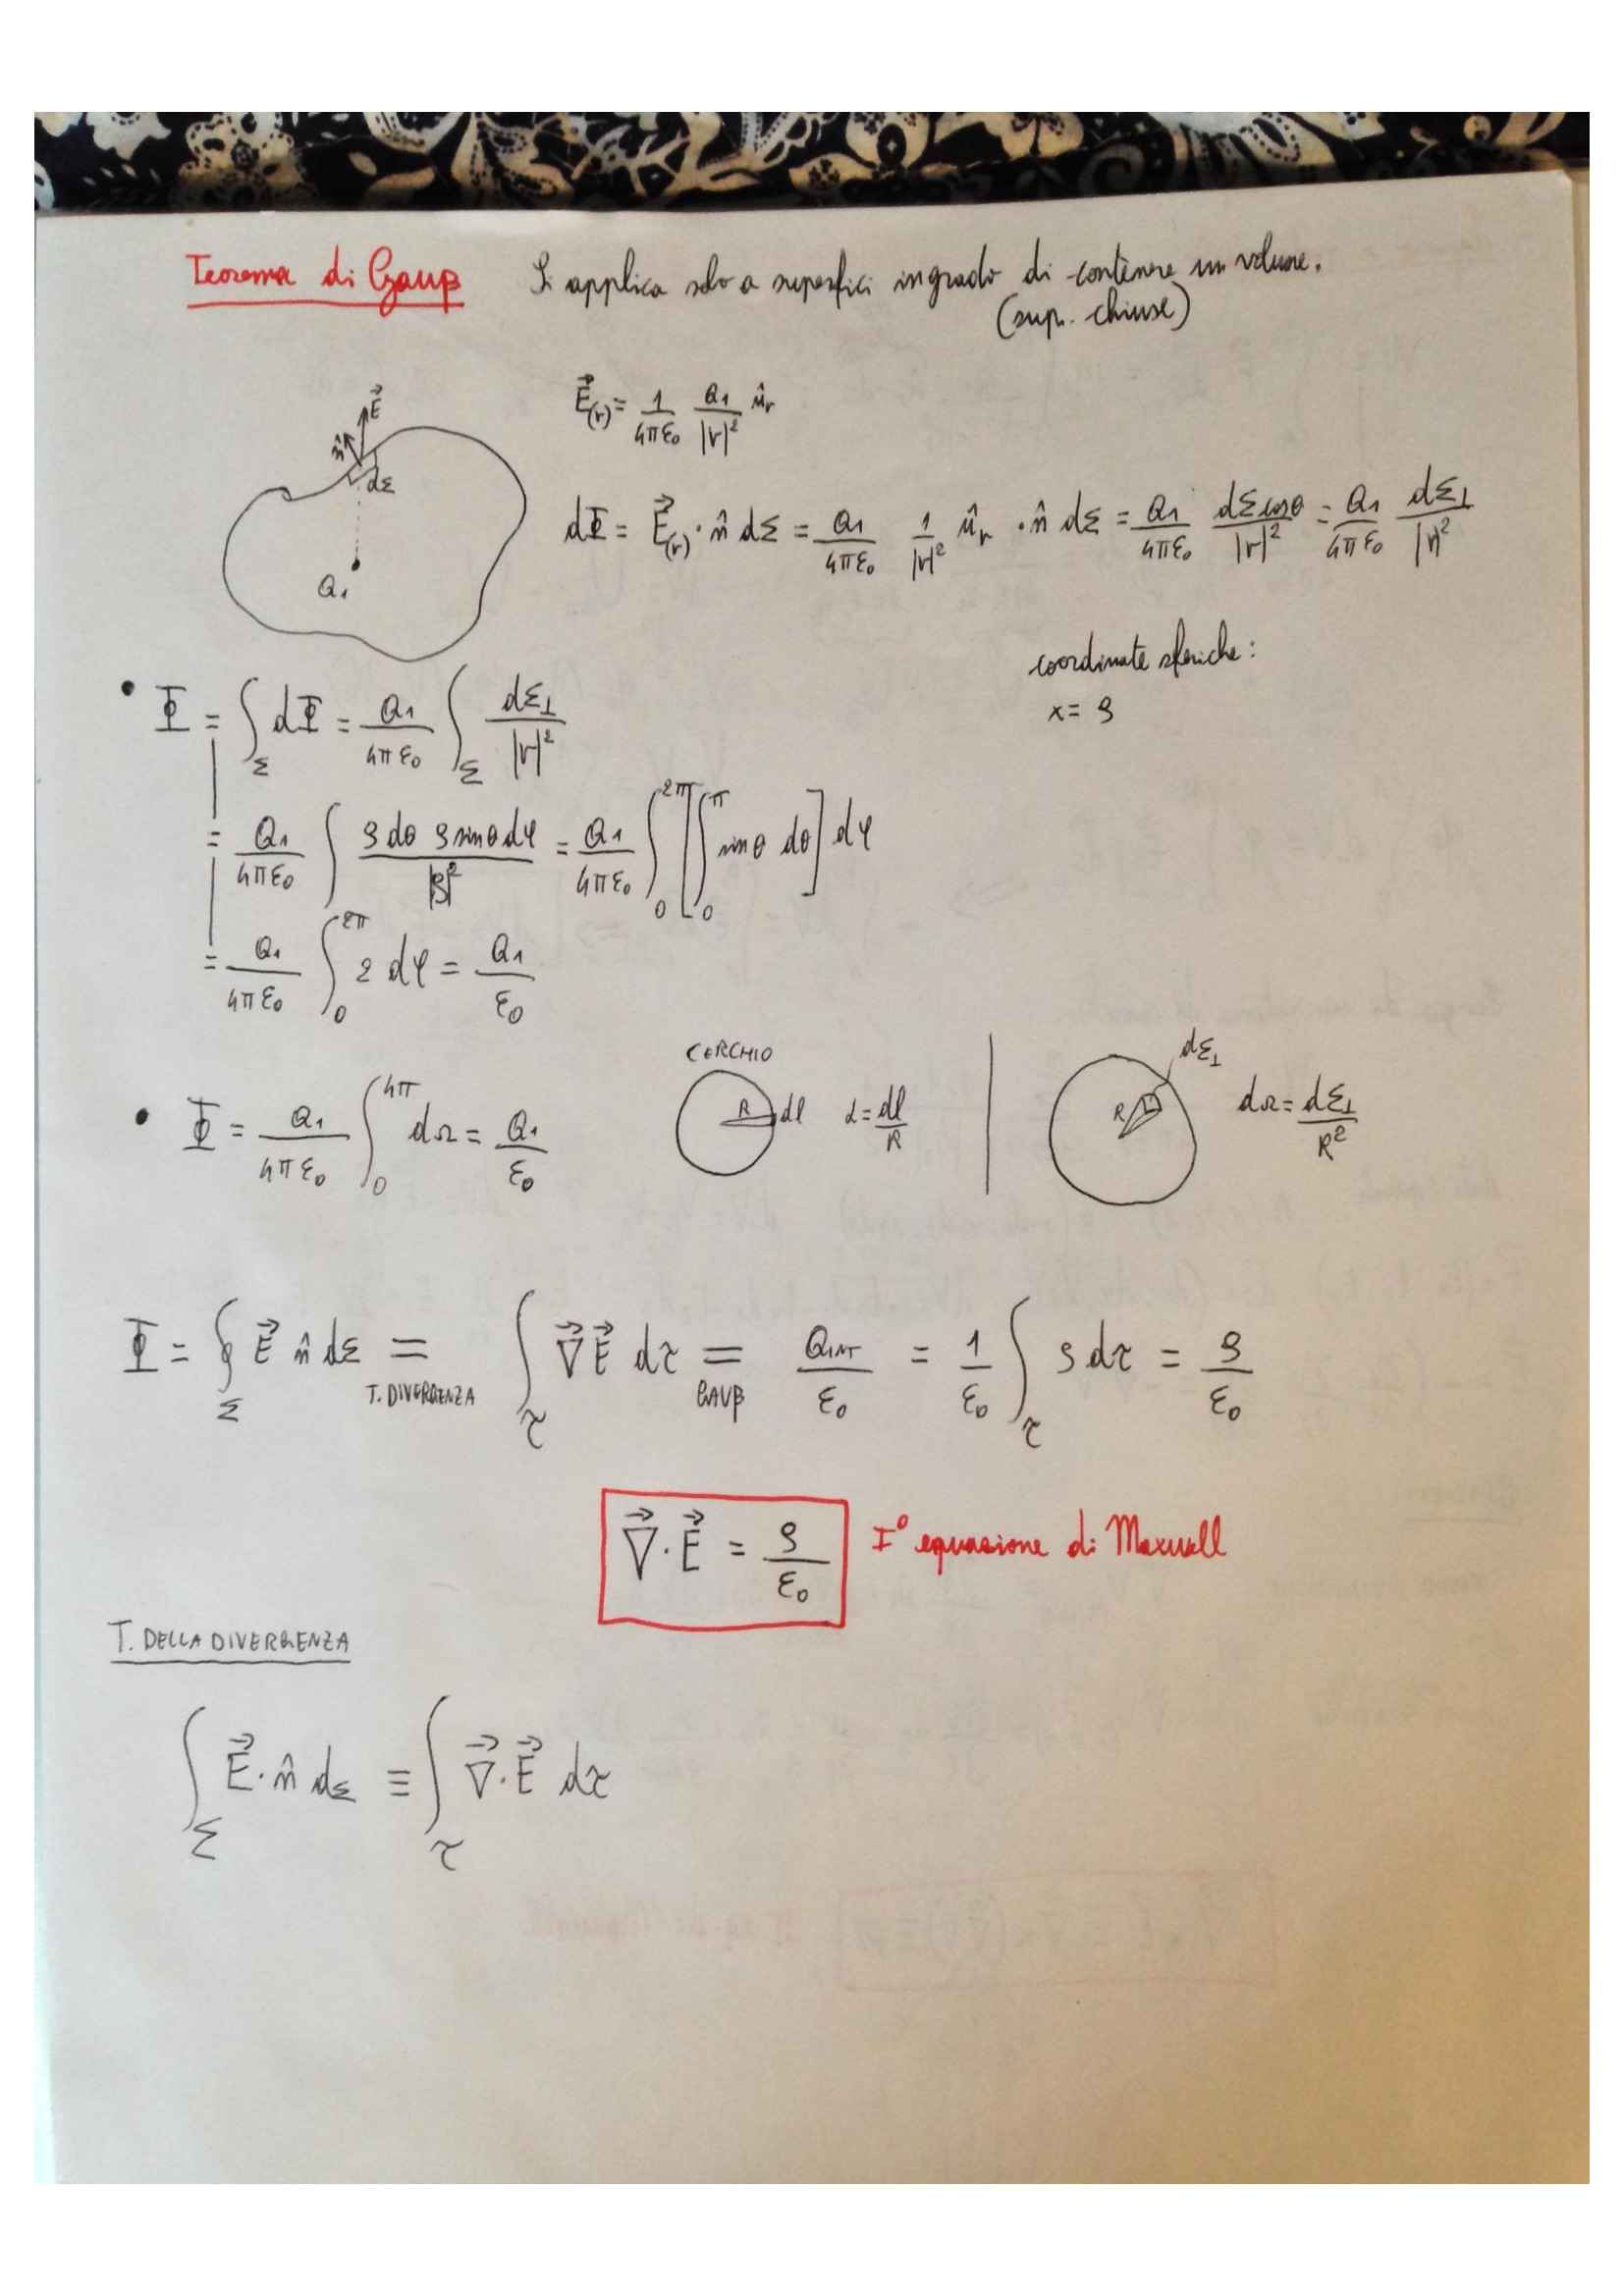 Teorema di Gauß Si applica solo a superfici in grado di contenere un volume.
(sup. chiuse)
E⃗(r) = 1/4πε₀ Q₁/|r|² û_r
E⃗
n̂
dΣ
Q₁
dΦ = E⃗(r) · n̂ dΣ = Q₁/4πε₀ 1/|r|² û_r · n̂ dΣ = Q₁/4πε₀ dΣcosθ/|r|² = Q₁/4πε₀ dΣ⊥/|r|²
coordinate sferiche:
x = ρ
• Φ = ∫_Σ dΦ = Q₁/4πε₀ ∫_Σ dΣ⊥/|r|²
= Q₁/4πε₀ ∫ ρ dθ ρ sinθ dφ/|ρ|² = Q₁/4πε₀ ∫₀^2π [∫₀^π sinθ dθ] dφ
= Q₁/4πε₀ ∫₀^2π 2 dφ = Q₁/ε₀
• Φ = Q₁/4πε₀ ∫₀^4π dΩ = Q₁/ε₀
CERCHIO
R dl α = dl/R
dΣ⊥
R dΩ = dΣ⊥/R²
Φ = ∮_Σ E⃗ n̂ dΣ = ∫_τ ∇⃗ E⃗ dτ = Q_INT/ε₀ = 1/ε₀ ∫_τ ρ dτ = ρ/ε₀
T. DIVERGENZA GAUß
∇⃗ · E⃗ = ρ/ε₀ I° equazione di Maxwell
T. DELLA DIVERGENZA
∫_Σ E⃗ · n̂ dΣ ≡ ∫_τ ∇⃗ · E⃗ dτ